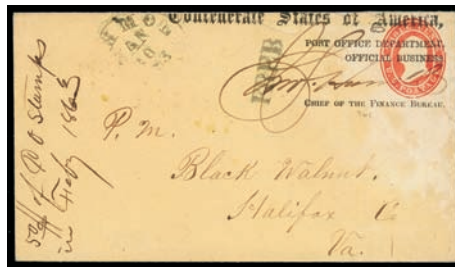 Confederate States of America,
POST OFFICE DEPARTMENT,
OFFICIAL BUSINESS
CHIEF OF THE FINANCE BUREAU.
FREE
P. M.
Black Walnut,
Halifax Co
Va.
50 of P O Stamps
in Feby 1863
JAN
10